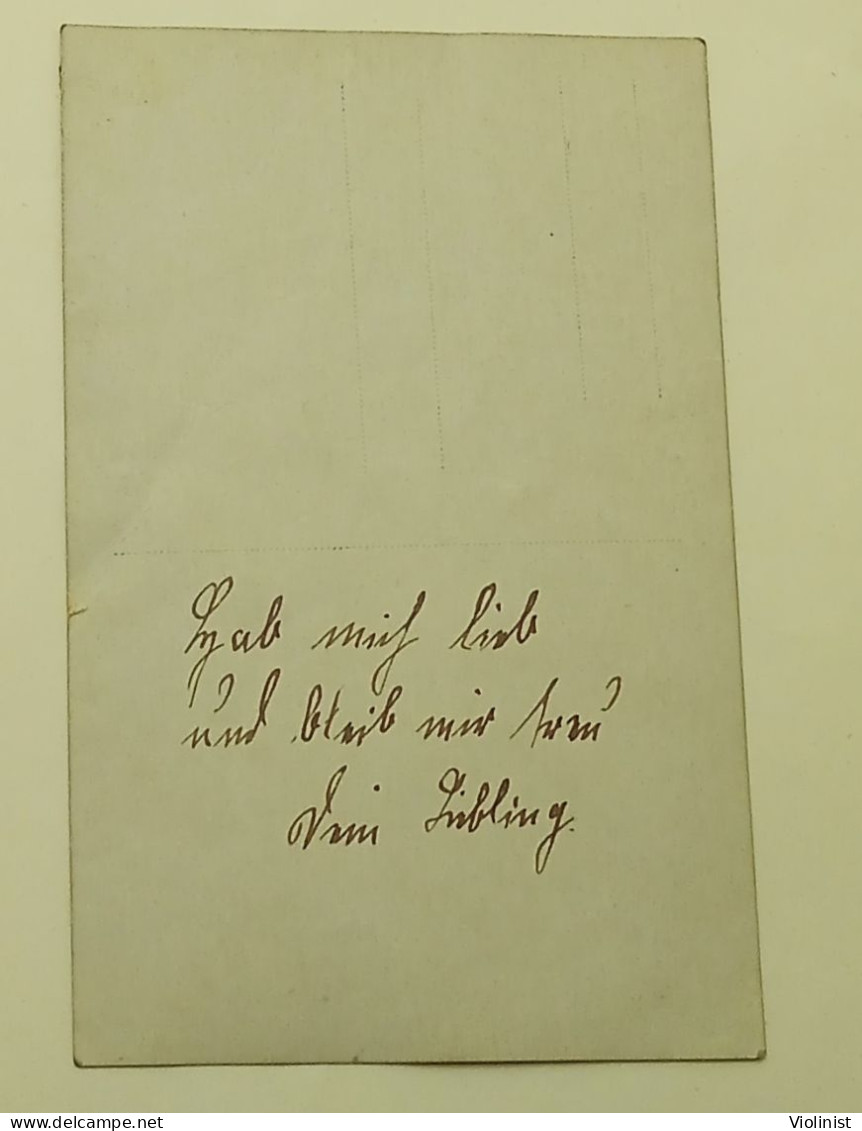 Hab mich lieb
und bleib mir treu
Dein Liebling.
DELCAMPE.NET
Violinist